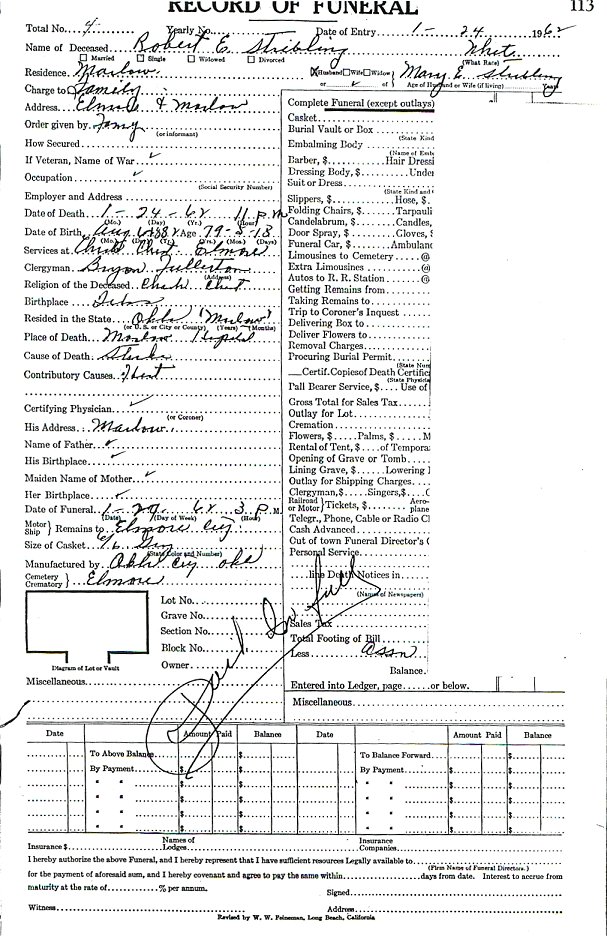 RECORD OF FUNERAL 113
Total No. 4 Yearly No. Date of Entry 1- 24 1962
Name of Deceased Robert E. Stribling Whit
Married Single Widowed Divorced (What Rate)
Residence Marlow Husband Wife Widow Mary E. Stribling
or Age of Husband or Wife (if living) Years
Charge to Family
Address Elmore & Marlow
Order given by
(or informant)
How Secured
If Veteran, Name of War ✓
Occupation ✓
(Social Security Number)
Employer and Address
Date of Death 1- 24 - 62 11 P.M
(Mo.) (Day) (Yr.) (Hour)
Date of Birth Aug Age 79
(Mo.) (Day) (Yr.) (Yrs.) (Mos.) (Days)
Services at Elmore
Clergyman Bryon Fullerton
(Address)
Religion of the Deceased
Birthplace
Resided in the State Okla (Marlow)
(or U. S. or City or County) (Years) (Months)
Place of Death Marlow Hospital
Cause of Death
Contributory Causes
Certifying Physician ✓
(or Coroner)
His Address Marlow
Name of Father ✓
His Birthplace ✓
Maiden Name of Mother ✓
Her Birthplace ✓
Date of Funeral 1- 62 3 P.M.
(Date) (Day of Week) (Hour)
Motor Ship } Remains to Elmore City
Size of Casket
(State Color and Number)
Manufactured by City Okla
Cemetery Crematory } Elmore
Lot No.
Grave No.
Section No.
Block No.
Owner
Diagram of Lot or Vault
Miscellaneous
Complete Funeral (except outlays)
Casket
Burial Vault or Box
(State Kind
Embalming Body
(Name of Emb
Barber, $ Hair Dressi
Dressing Body, $ Unde
Suit or Dress
(State Kind and
Slippers, $ Hose, $
Folding Chairs, $ Tarpauli
Candelabrum, $ Candles,
Door Spray, $ Gloves, $
Funeral Car, $ Ambulanc
Limousines to Cemetery @
Extra Limousines @
Autos to R. R. Station @
Getting Remains from
Taking Remains to
Trip to Coroner's Inquest
Delivering Box to
Deliver Flowers to
Removal Charges
Procuring Burial Permit
(State Num
Certif. Copies of Death Certific
(State Physicia
Pall Bearer Service, $ Use of
Gross Total for Sales Tax
Outlay for Lot
Cremation
Flowers, $ Palms, $ M
Rental of Tent, $ of Tempora
Opening of Grave or Tomb
Lining Grave, $ Lowering
Outlay for Shipping Charges
Clergyman, $ Singers, $
Railroad or Motor } Tickets, $ Aero-plane
Telegr., Phone, Cable or Radio C
Cash Advanced
Out of town Funeral Director's
Personal Service
line Death Notices in
(Names of Newspapers)
Sales Tax
Total Footing of Bill
Less Assn
Balance
Entered into Ledger, page or below.
Miscellaneous
Paid In Full
Date Amount Paid Balance Date Amount Paid Balance
To Above Balance $ To Balance Forward $
By Payment $ $ By Payment $ $
" " $ $ " " $ $
" " $ $ " " $ $
" " $ $ " " $ $
Insurance $ Names of Lodges Insurance Companies
I hereby authorize the above Funeral, and I hereby represent that I have sufficient resources Legally available to
(Firm Name of Funeral Directors.)
for the payment of aforesaid sum, and I hereby covenant and agree to pay the same within days from date. Interest to accrue from
maturity at the rate of % per annum. Signed
Witness Address
Revised by W. W. Feineman, Long Beach, California